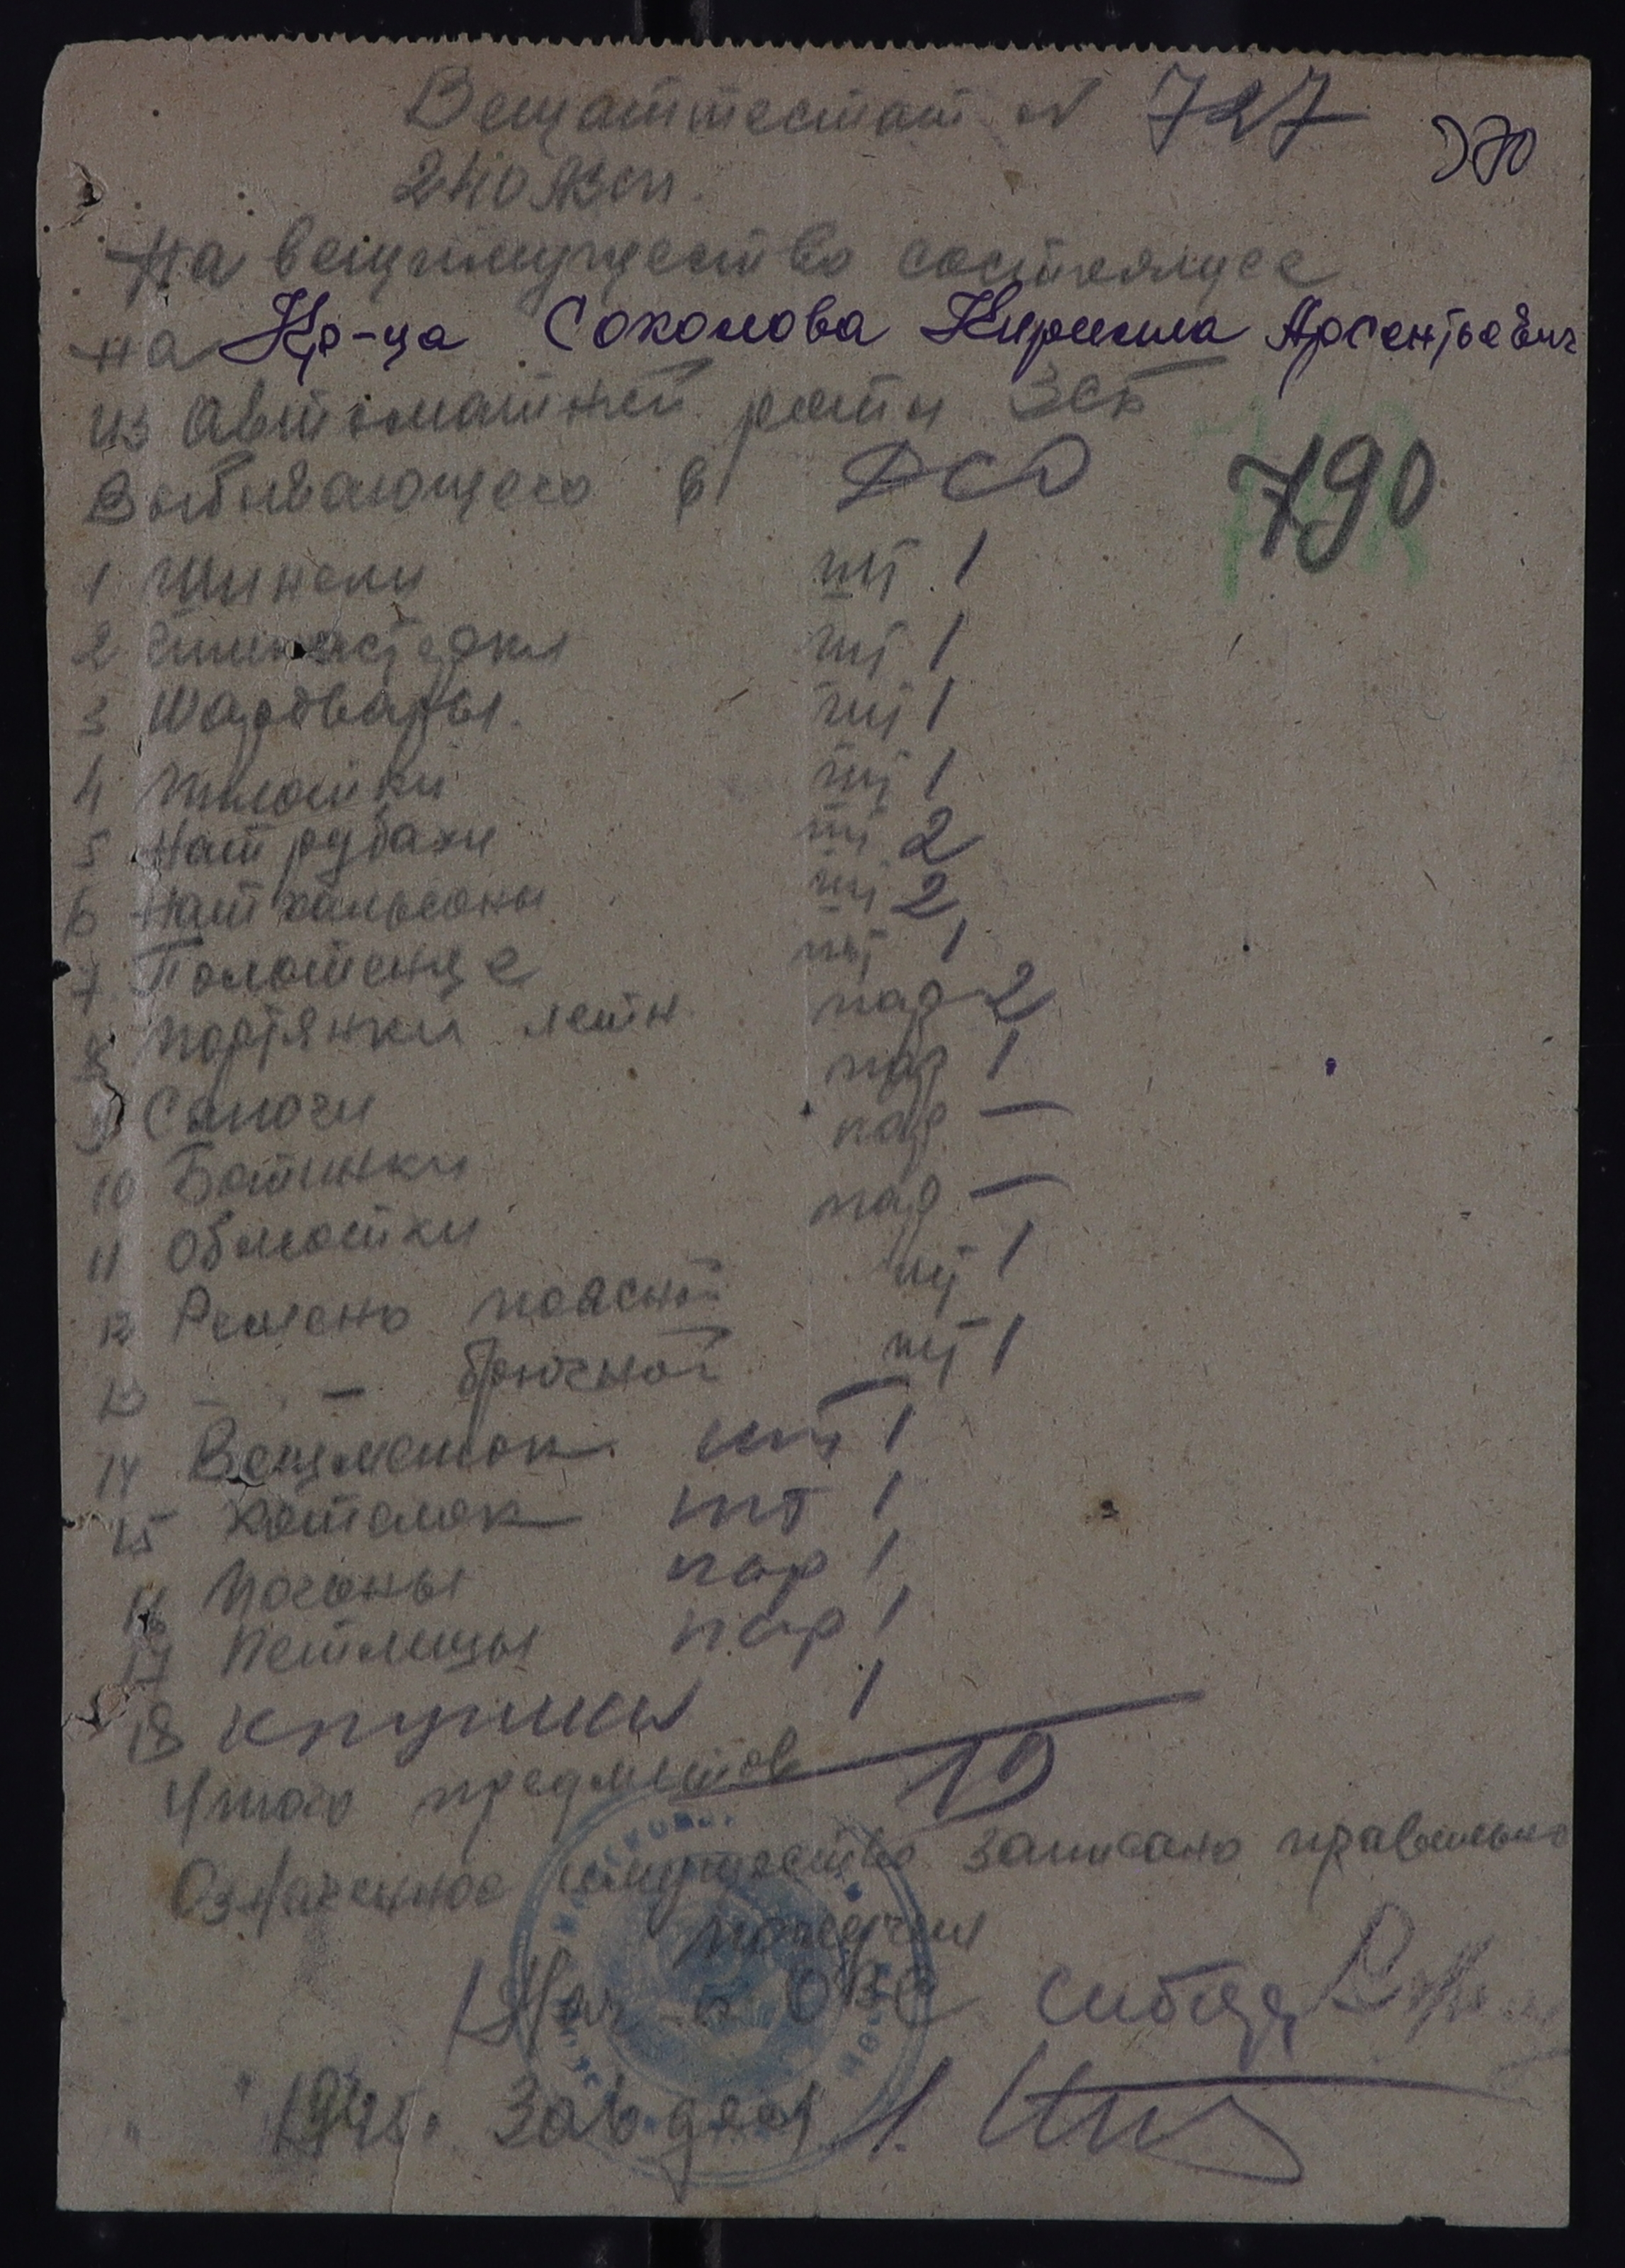 Вещаттестат N 727
370
240 АЗСП.
На вещимущество состоящее
на Кр-ца Соколова Кирилла Арсентьевич
из автоматной роты ЗСБ
Выбывающего в ДСО
790
1 Шинели шт 1
2 Гимнастерки шт 1
3 Шаровары шт 1
4 Пилотки шт 1
5 Нат рубахи шт 2
6 Нат кальсоны шт 2
7 Полотенце шт 1
8 Портянки летн пар 2
9 Сапоги пар 1
10 Ботинки пар —
11 Обмотки пар —
12 Ремень поясной шт 1
13 - . - брючной шт 1
14 Вещмешок шт 1
15 Котелок шт 1
16 Погоны пар 1
17 Петлицы пар 1
18 1
Итого предметов 19
Означенное имущество записано правильно
Нач-к ОВС
194 г. Завдел